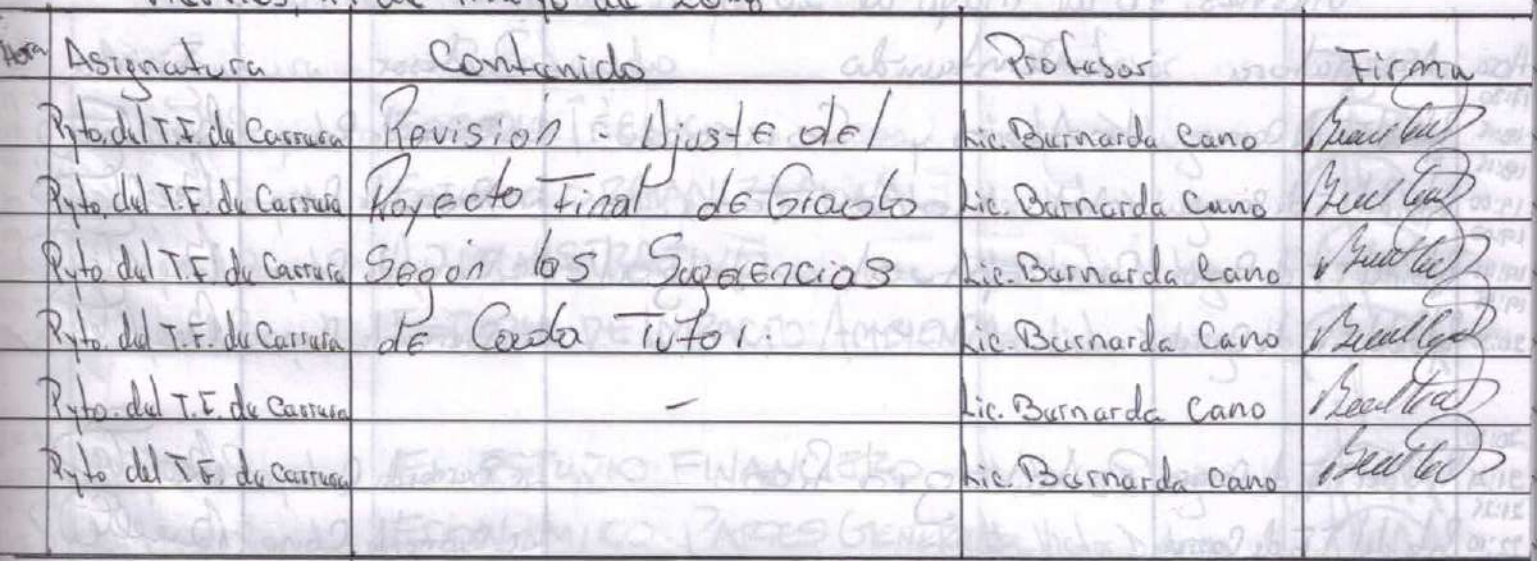 Hora Asignatura Contenido Profesor Firma
Pyto. del T.F. de Carrera Revisión - Ajuste del Lic. Bernarda Cano
Pyto. del T.F. de Carrera Proyecto Final de Grado Lic. Bernarda Cano
Pyto. del T.F. de Carrera Según las Sugerencias Lic. Bernarda Cano
Pyto. del T.F. de Carrera de Cada Tutor. Lic. Bernarda Cano
Pyto. del T.F. de Carrera - Lic. Bernarda Cano
Pyto del T.F. de Carrera Lic. Bernarda Cano